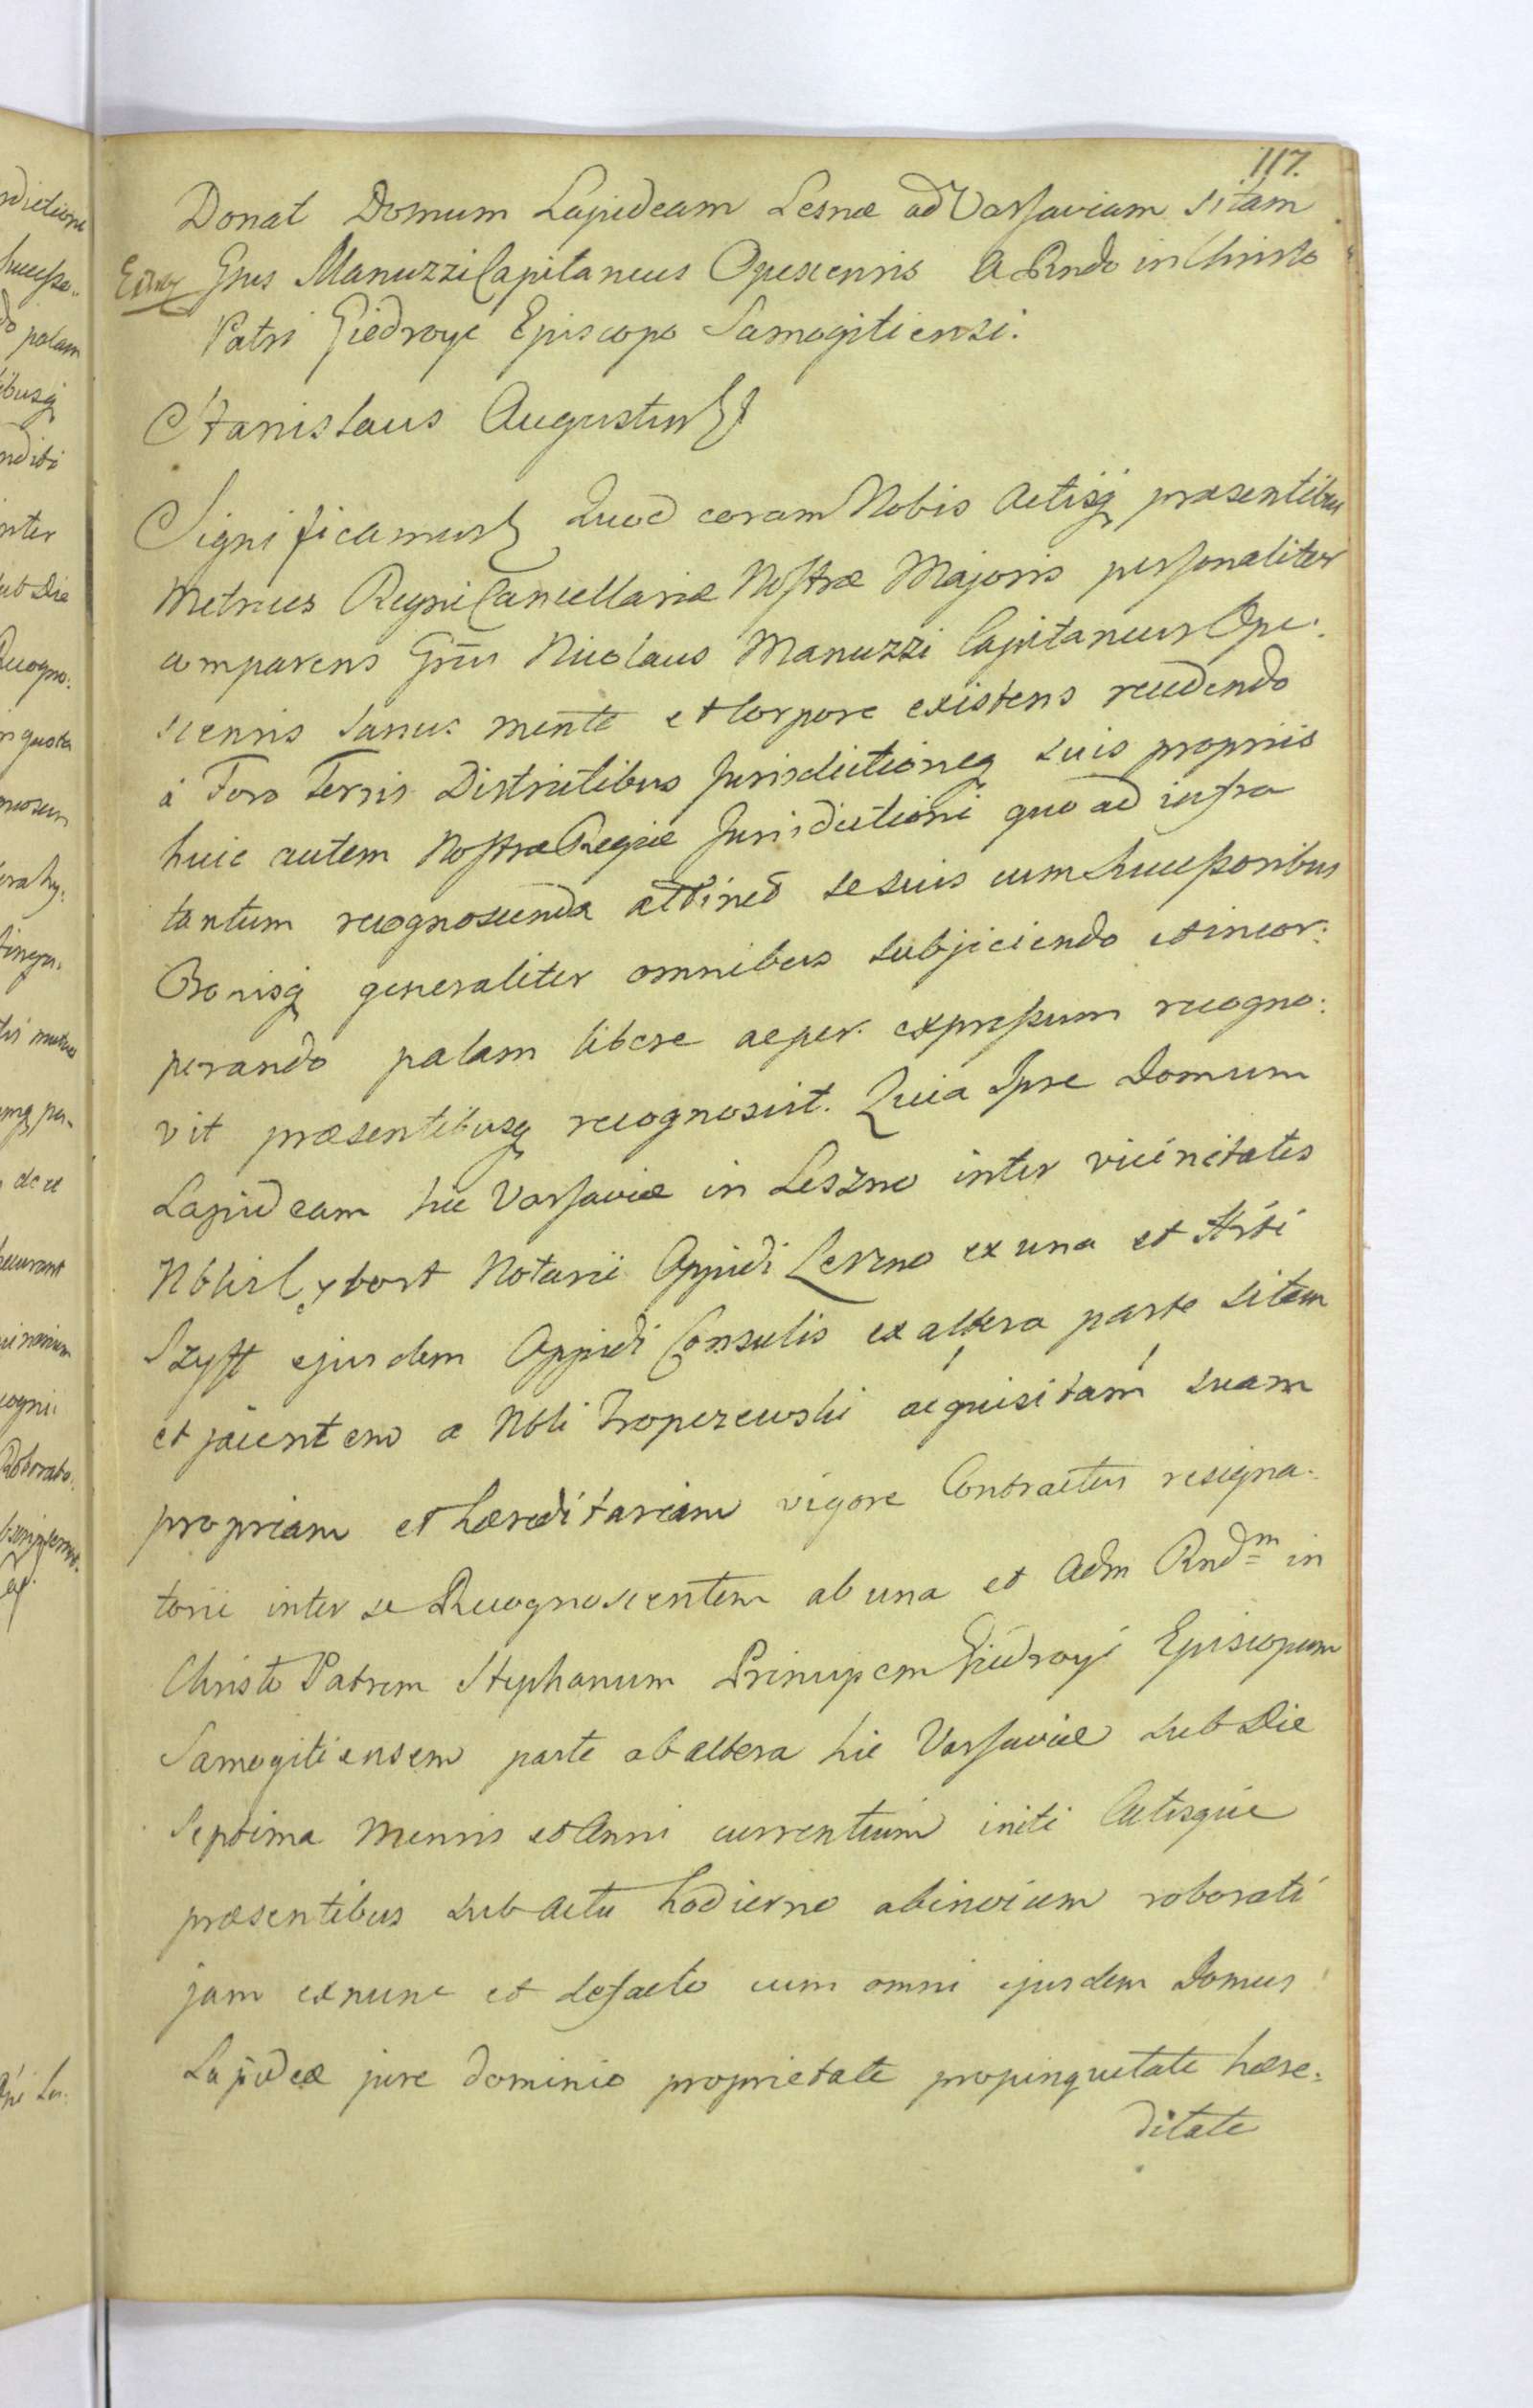 117.
Donat Domum Lapideam Lesnæ ad Varsaviam sitam
Gsus Manuzzi Capitaneus Opescensis A Rndo in Christo
Patri Giedroyc Episcopo Samogitiensi.
Stanislaus Augustus
Significamus Quod coram Nobis Actisq præsentibus
Metrices Regni Cancellariæ Nostræ Majoris personaliter
comparens Gsus Nicolaus Manuzzi Capitaneus Ope:
scensis sanus mente et Corpore existens recedendo
à Foro Terris Districtibus Jurisdictioneq suis propriis
huic autem Nostræ Regiæ Jurisdictioni quo ad infra
tantum recognoscenda attinet se suis cum Successoribus
Bonisq generaliter omnibus subjiciendo et incor:
porando palam libere ac per expressum recogno:
vit præsentibusq recognoscit. Quia Ipse Domum
Lapideam hic Varsaviæ in Leszno inter vicinitates
Nobilis Notarii Oppidi Leszno ex una et
Szyft ejusdem Oppidi Consulis ex altera parte sitam
et jacentem a Nbli Tropczewski acquisitam suam
propriam et hæreditariam vigore Contractus resigna:
torii inter se Recognoscentem ab una et Adm Rndm in
Christo Patrem Stephanum Principem Giedroyć Episcopum
Samogitiensem parte ab altera hic Varsaviæ sub Die
Septima Mensis et Anni currentium initi Actisque
præsentibus sub Actu hodierno abinvicem roborati
jam exnunc et defacto cum omni ejusdem Domus
Lapideæ jure dominio proprietate propinquitate hære:
ditate